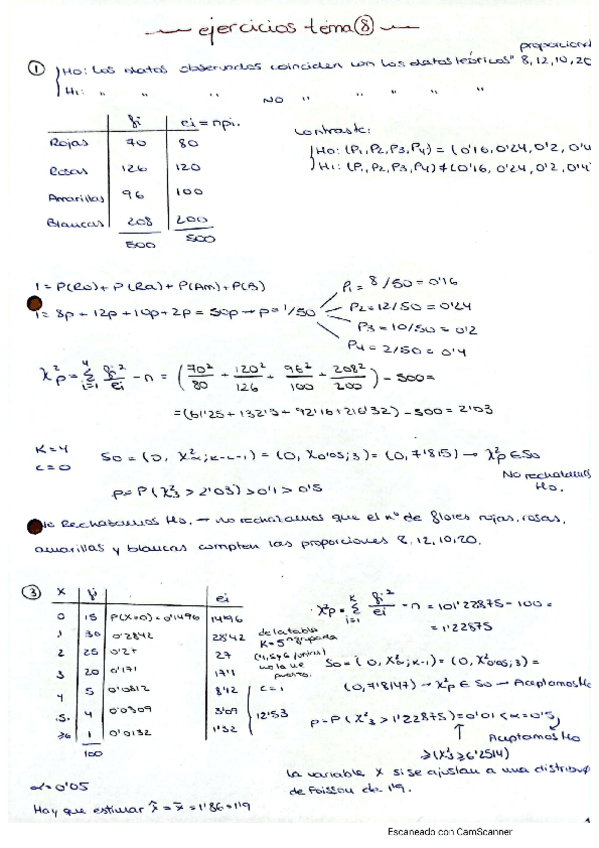 ejercicios tema 8
proporciona
① { H0: Los datos observados coinciden con los datos teóricos" 8,12,10,20
H1: " " " NO " " " " "
fi | ei = npi.
Rojas | 70 | 80
Rosas | 126 | 120
Amarillas | 96 | 100
Blancas | 208 | 200
500 | 500
contraste:
{ H0: (P1,P2,P3,P4) = (0'16, 0'24, 0'2, 0'4
H1: (P1,P2,P3,P4) ≠ (0'16, 0'24, 0'2, 0'4
1 = P(Ro) + P(Ra) + P(Am) + P(B)
1 = 8p + 12p + 10p + 2p = 50p → p = 1/50
P1 = 8/50 = 0'16
P2 = 12/50 = 0'24
P3 = 10/50 = 0'2
P4 = 2/50 = 0'4
χ²p = Σ fi²/ei - n = (70²/80 + 120²/126 + 96²/100 + 208²/200) - 500 =
= (61'25 + 132'3 + 92'16 + 216'32) - 500 = 2'03
K = 4
c = 0
S0 = (0, χ²α; k-c-1) = (0, χ0'05; 3) = (0, 7'815) → χ²p ∈ S0
No rechazamos H0.
p = P(χ²3 > 2'03) > 0'1 > 0'5
Rechazamos H0. → no rechazamos que el nº de flores rojas, rosas,
amarillas y blancas cumplen las proporciones 8, 12, 10, 20.
③ X | fi | | ei
0 | 15 | P(X=0) = 0'1496 | 14'96
1 | 30 | 0'2842 | 28'42
2 | 25 | 0'27 | 27
3 | 20 | 0'171 | 17'1
4 | 5 | 0'0812 | 8'12
5 | 4 | 0'0309 | 3'09
≥6 | 1 | 0'0132 | 1'32
100
12'53
c = 1
de la tabla
K = 5 agrupada
χ²p = Σ fi²/ei - n = 101'22875 - 100 =
= 1'22875
S0 = (0, χ²α; k-1) = (0, χ²0'05; 3) =
(0, 7'8147) → χ²p ∈ S0 → Aceptamos H0
p = P(χ²3 > 1'22875) = 0'01 < α = 0'5
Aceptamos H0
≥ (χ²3 ≥ 6'2514)
La variable X si se ajustan a una distribu
de Poisson de 1'9.
α = 0'05
Hay que estimar λ̂ = x̄ = 1'86 = 1'9
Escaneado con CamScanner